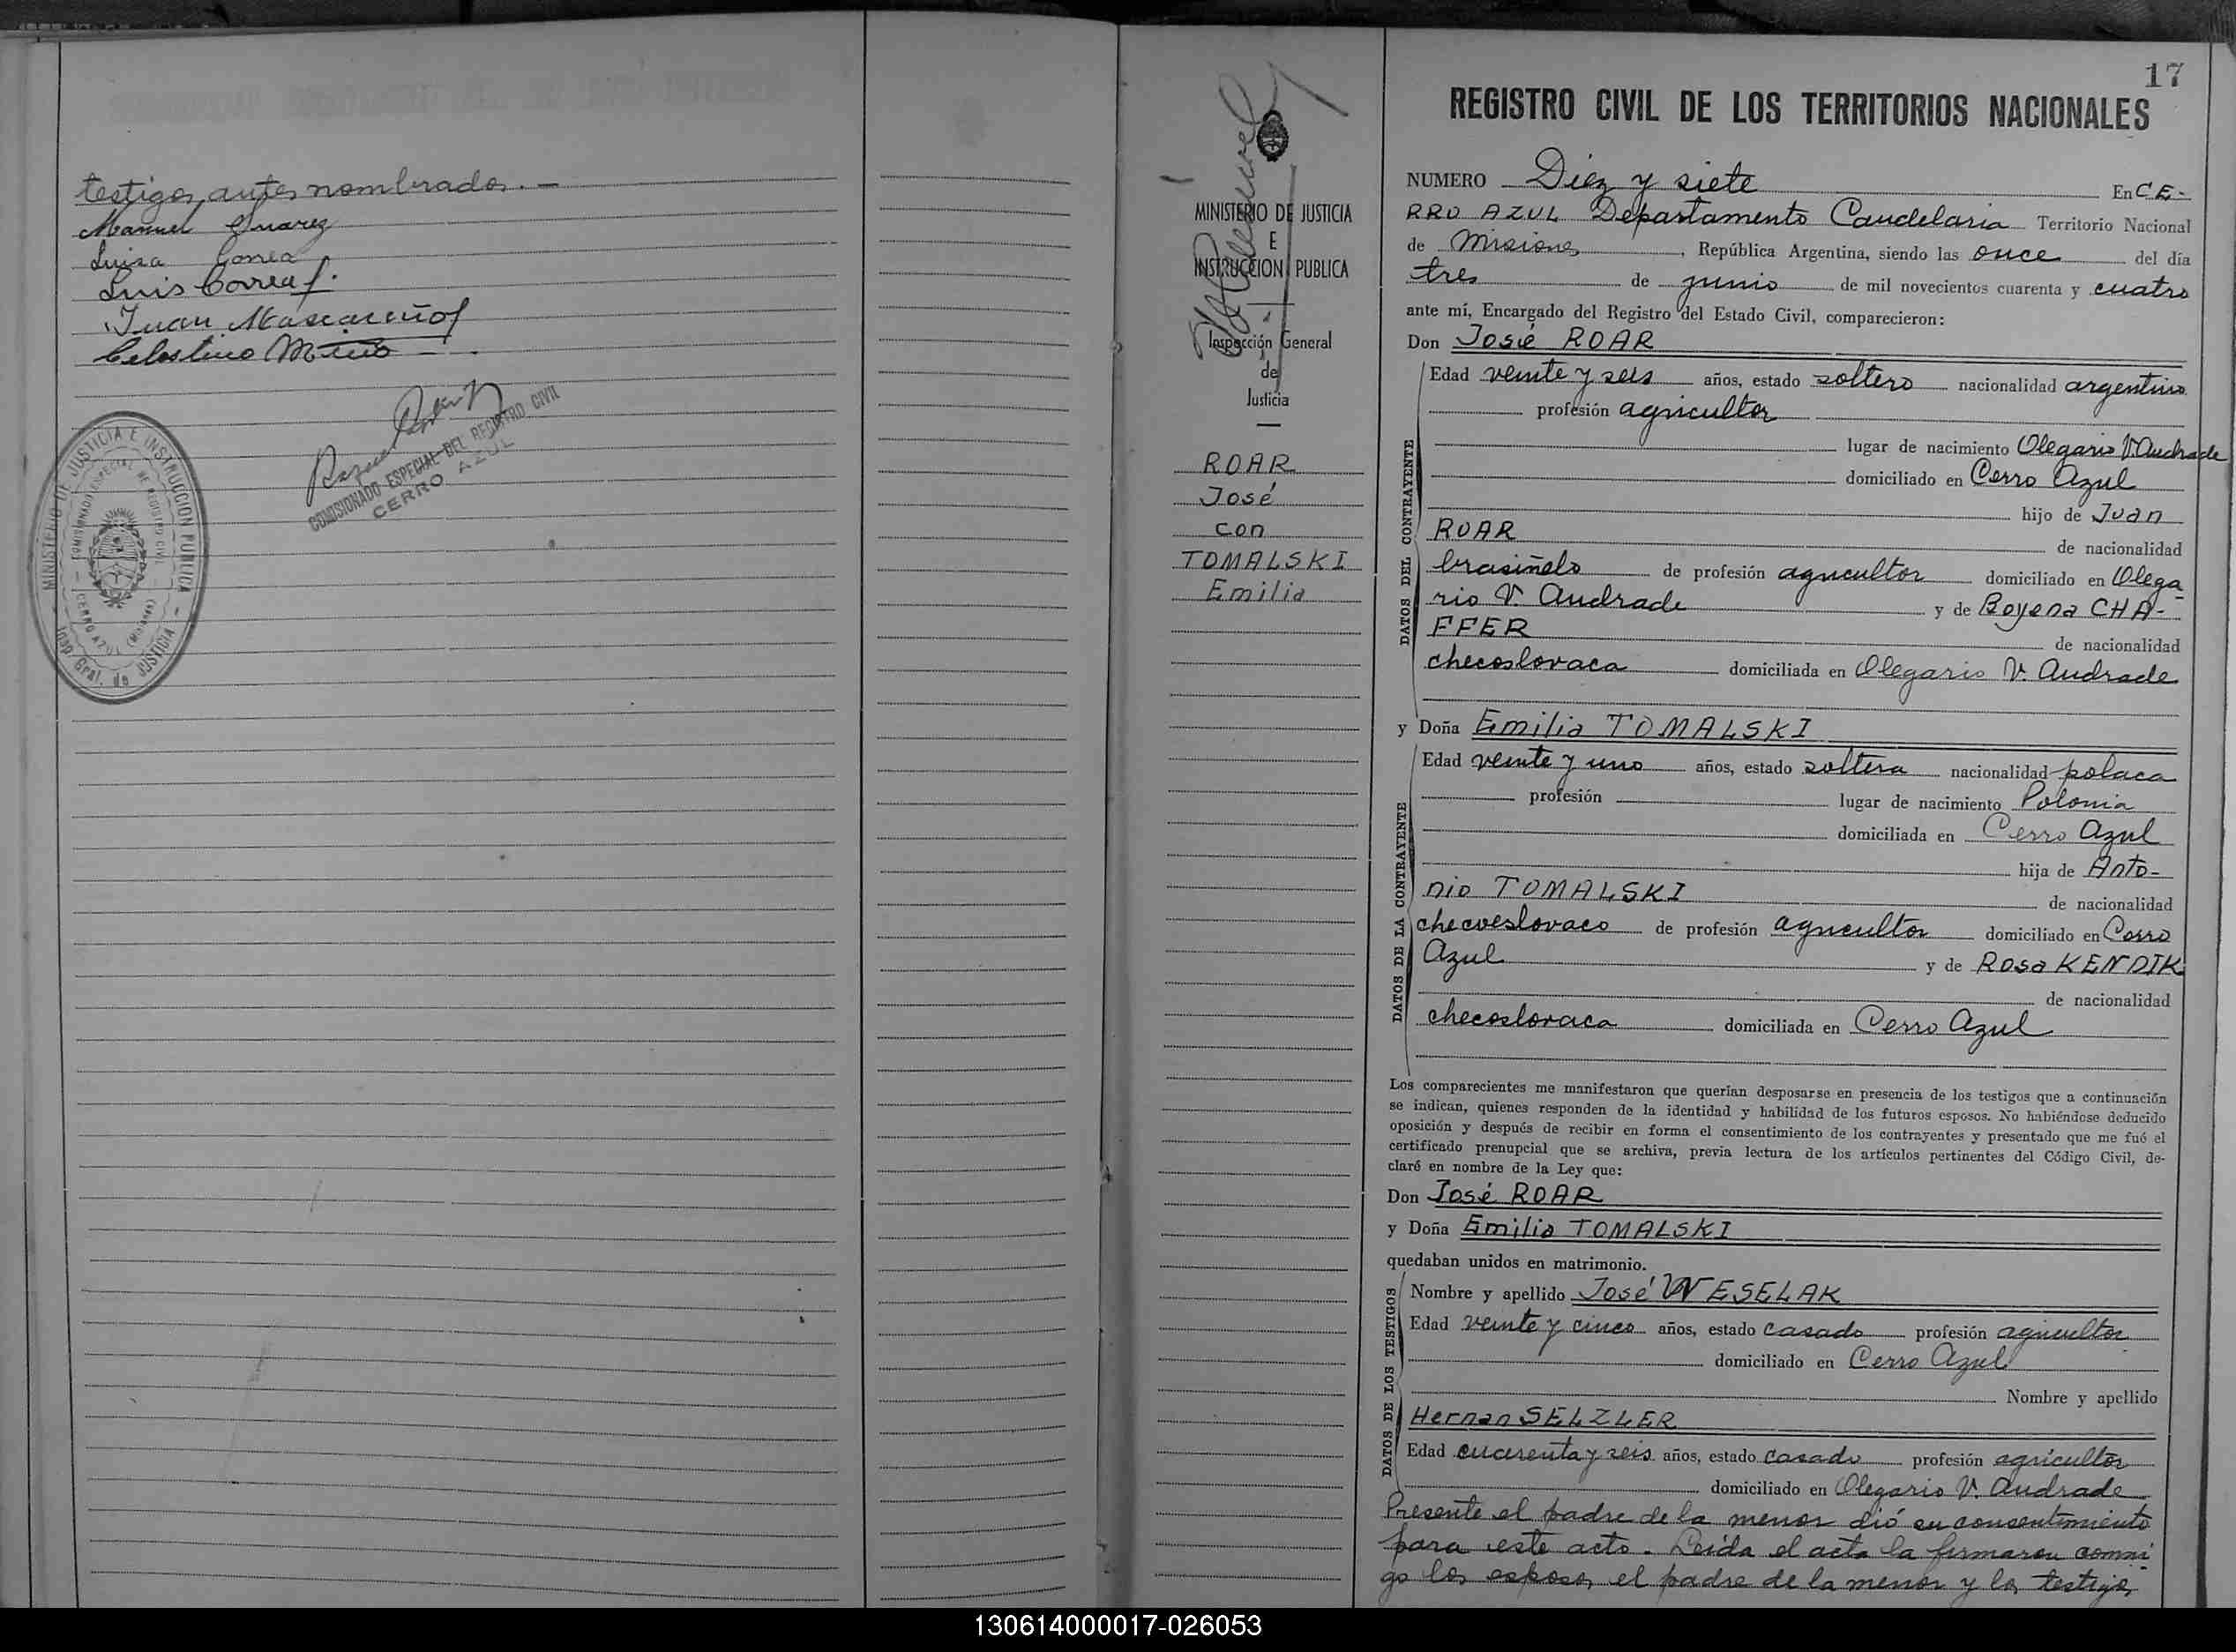 testigos antes nombrados. —
Manuel Suarez
Luisa Correa
Luis Correa f.
Juan Mascareño f
Celestino Miño
COMISIONADO ESPECIAL DEL REGISTRO CIVIL
CERRO AZUL
MINISTERIO DE JUSTICIA E INSTRUCCION PUBLICA
COMISIONADO ESPECIAL DE REGISTRO CIVIL
CERRO AZUL (Misiones)
Insp. Gral. de JUSTICIA
MINISTERIO DE JUSTICIA
E
INSTRUCCION PUBLICA
Inspección General
de
Justicia
ROAR
José
con
TOMALSKI
Emilia
17
REGISTRO CIVIL DE LOS TERRITORIOS NACIONALES
NUMERO Diez y siete En CE-
RRO AZUL Departamento Candelaria Territorio Nacional
de Misiones, República Argentina, siendo las once del día
tres de junio de mil novecientos cuarenta y cuatro
ante mí, Encargado del Registro del Estado Civil, comparecieron:
Don José ROAR
DATOS DEL CONTRAYENTE
Edad veinte y seis años, estado soltero nacionalidad argentino
profesión agricultor
lugar de nacimiento Olegario V. Andrade
domiciliado en Cerro Azul
hijo de Juan
ROAR de nacionalidad
brasiñelo de profesión agricultor domiciliado en Olega-
rio V. Andrade y de Boyena CHA-
FFER de nacionalidad
checoslovaca domiciliada en Olegario V. Andrade
y Doña Emilia TOMALSKI
DATOS DE LA CONTRAYENTE
Edad veinte y uno años, estado soltera nacionalidad polaca
profesión lugar de nacimiento Polonia
domiciliada en Cerro Azul
hija de Anto-
nio TOMALSKI de nacionalidad
checoeslovaco de profesión agricultor domiciliado en Cerro
Azul y de Rosa KENDIK
de nacionalidad
checoslovaca domiciliada en Cerro Azul
Los comparecientes me manifestaron que querían desposarse en presencia de los testigos que a continuación
se indican, quienes responden de la identidad y habilidad de los futuros esposos. No habiéndose deducido
oposición y después de recibir en forma el consentimiento de los contrayentes y presentado que me fué el
certificado prenupcial que se archiva, previa lectura de los artículos pertinentes del Código Civil, de-
claré en nombre de la Ley que:
Don José ROAR
y Doña Emilia TOMALSKI
quedaban unidos en matrimonio.
DATOS DE LOS TESTIGOS
Nombre y apellido José WESELAK
Edad veinte y cinco años, estado casado profesión agricultor
domiciliado en Cerro Azul
Nombre y apellido
Hernan SELZLER
Edad cuarenta y seis años, estado casado profesión agricultor
domiciliado en Olegario V. Andrade
Presente el padre de la menor dió su consentimiento
para este acto. Leída el acta la firmaron conmi-
go los esposos, el padre de la menor y los testigos
130614000017-026053